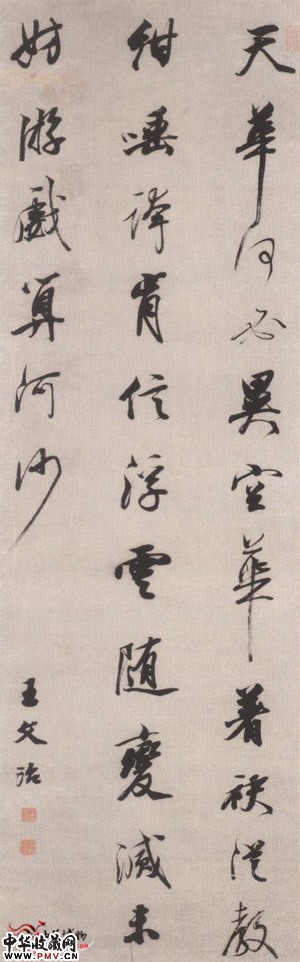 天華何必異空華着袂從教
紺唾肯信浮雲隨變滅未
妨游戲算河沙
王文治
中华收藏网
WWW.PMV.CN